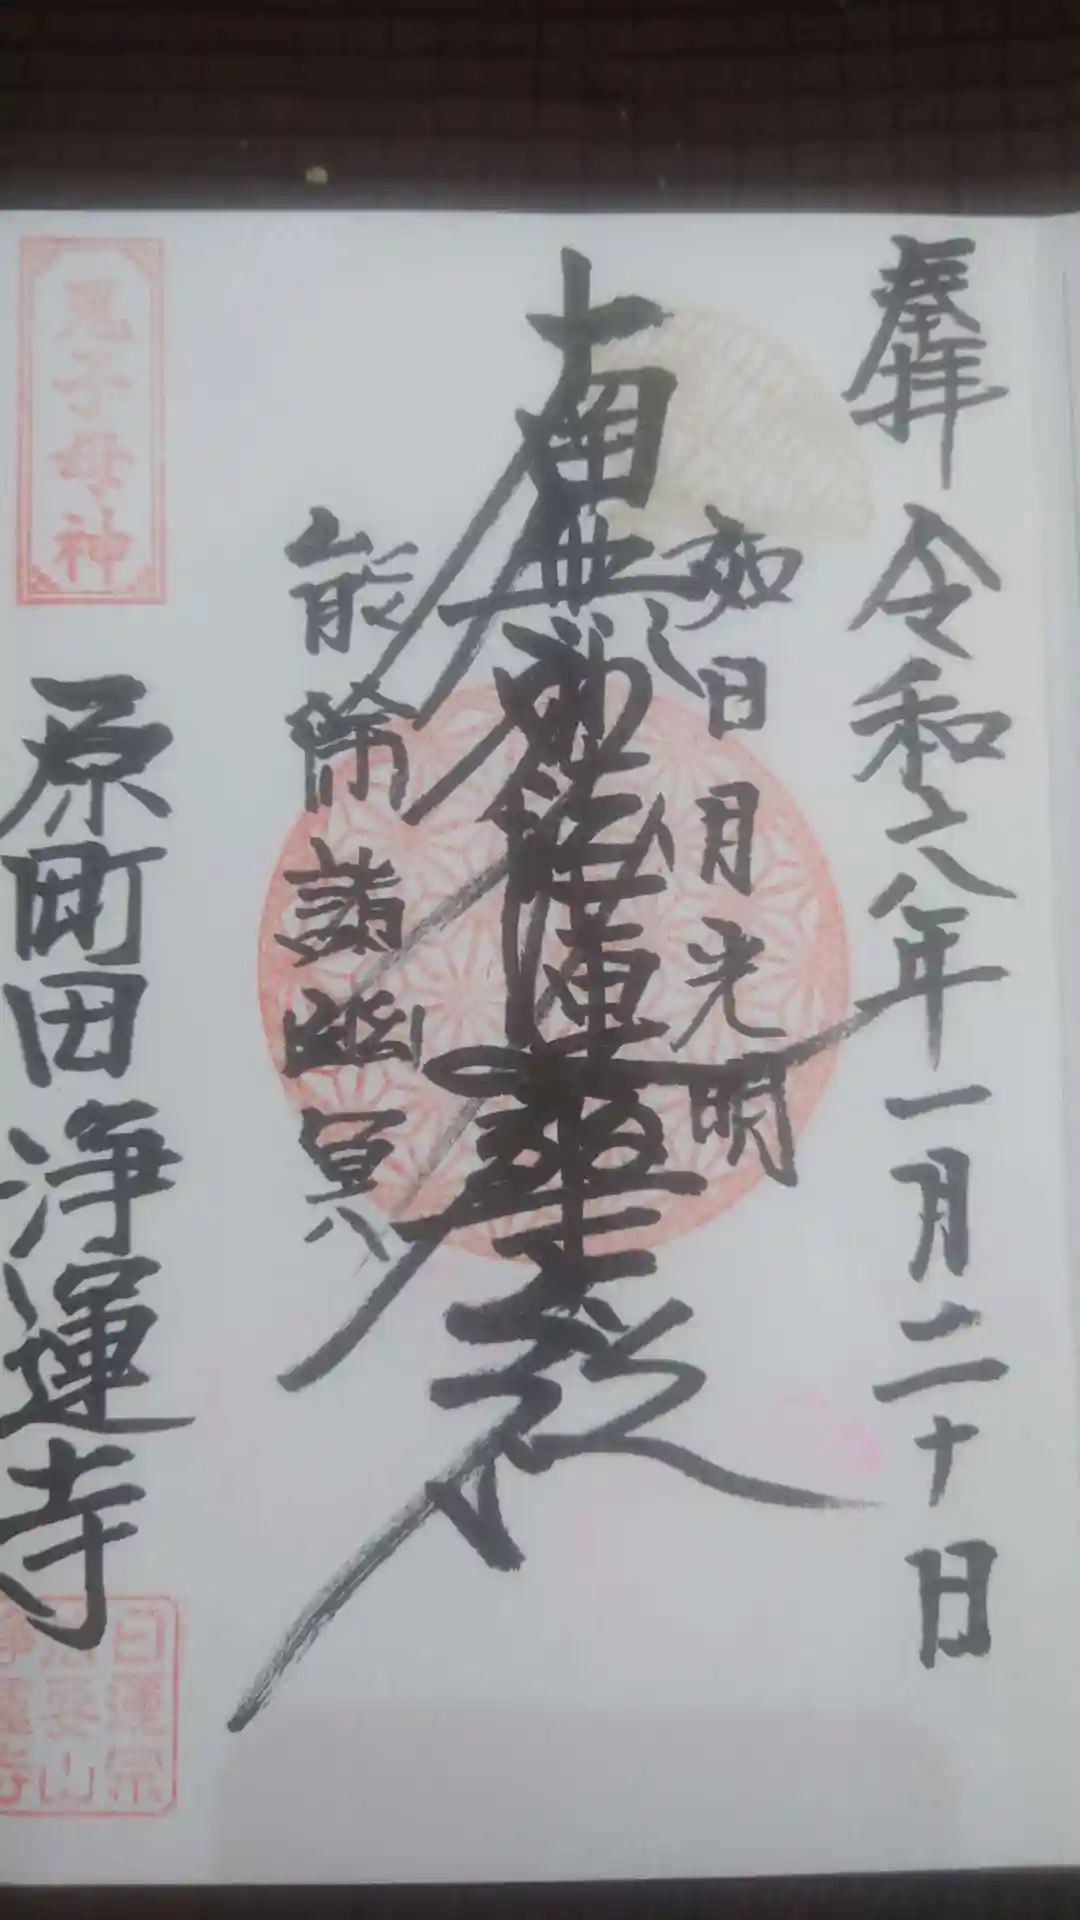 奉拝 令和八年一月二十日
如日月光明
南無妙法蓮華経
能除諸幽冥
鬼子母神
原町田 浄運寺
日蓮宗
法要山
浄運寺